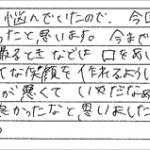 悩んでいたので、今回
ったと思います。今まで
撮るときなどは口をあい
イな笑顔を作れるように
が悪くていやだなあ
良かったなと思いました